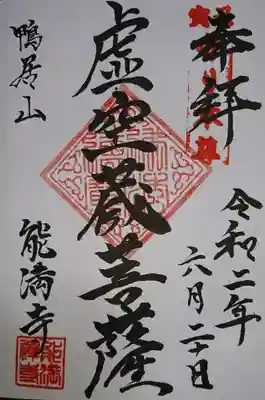 奉拝
令和二年
六月二十日
虚空蔵菩薩
鴨居山
能満寺